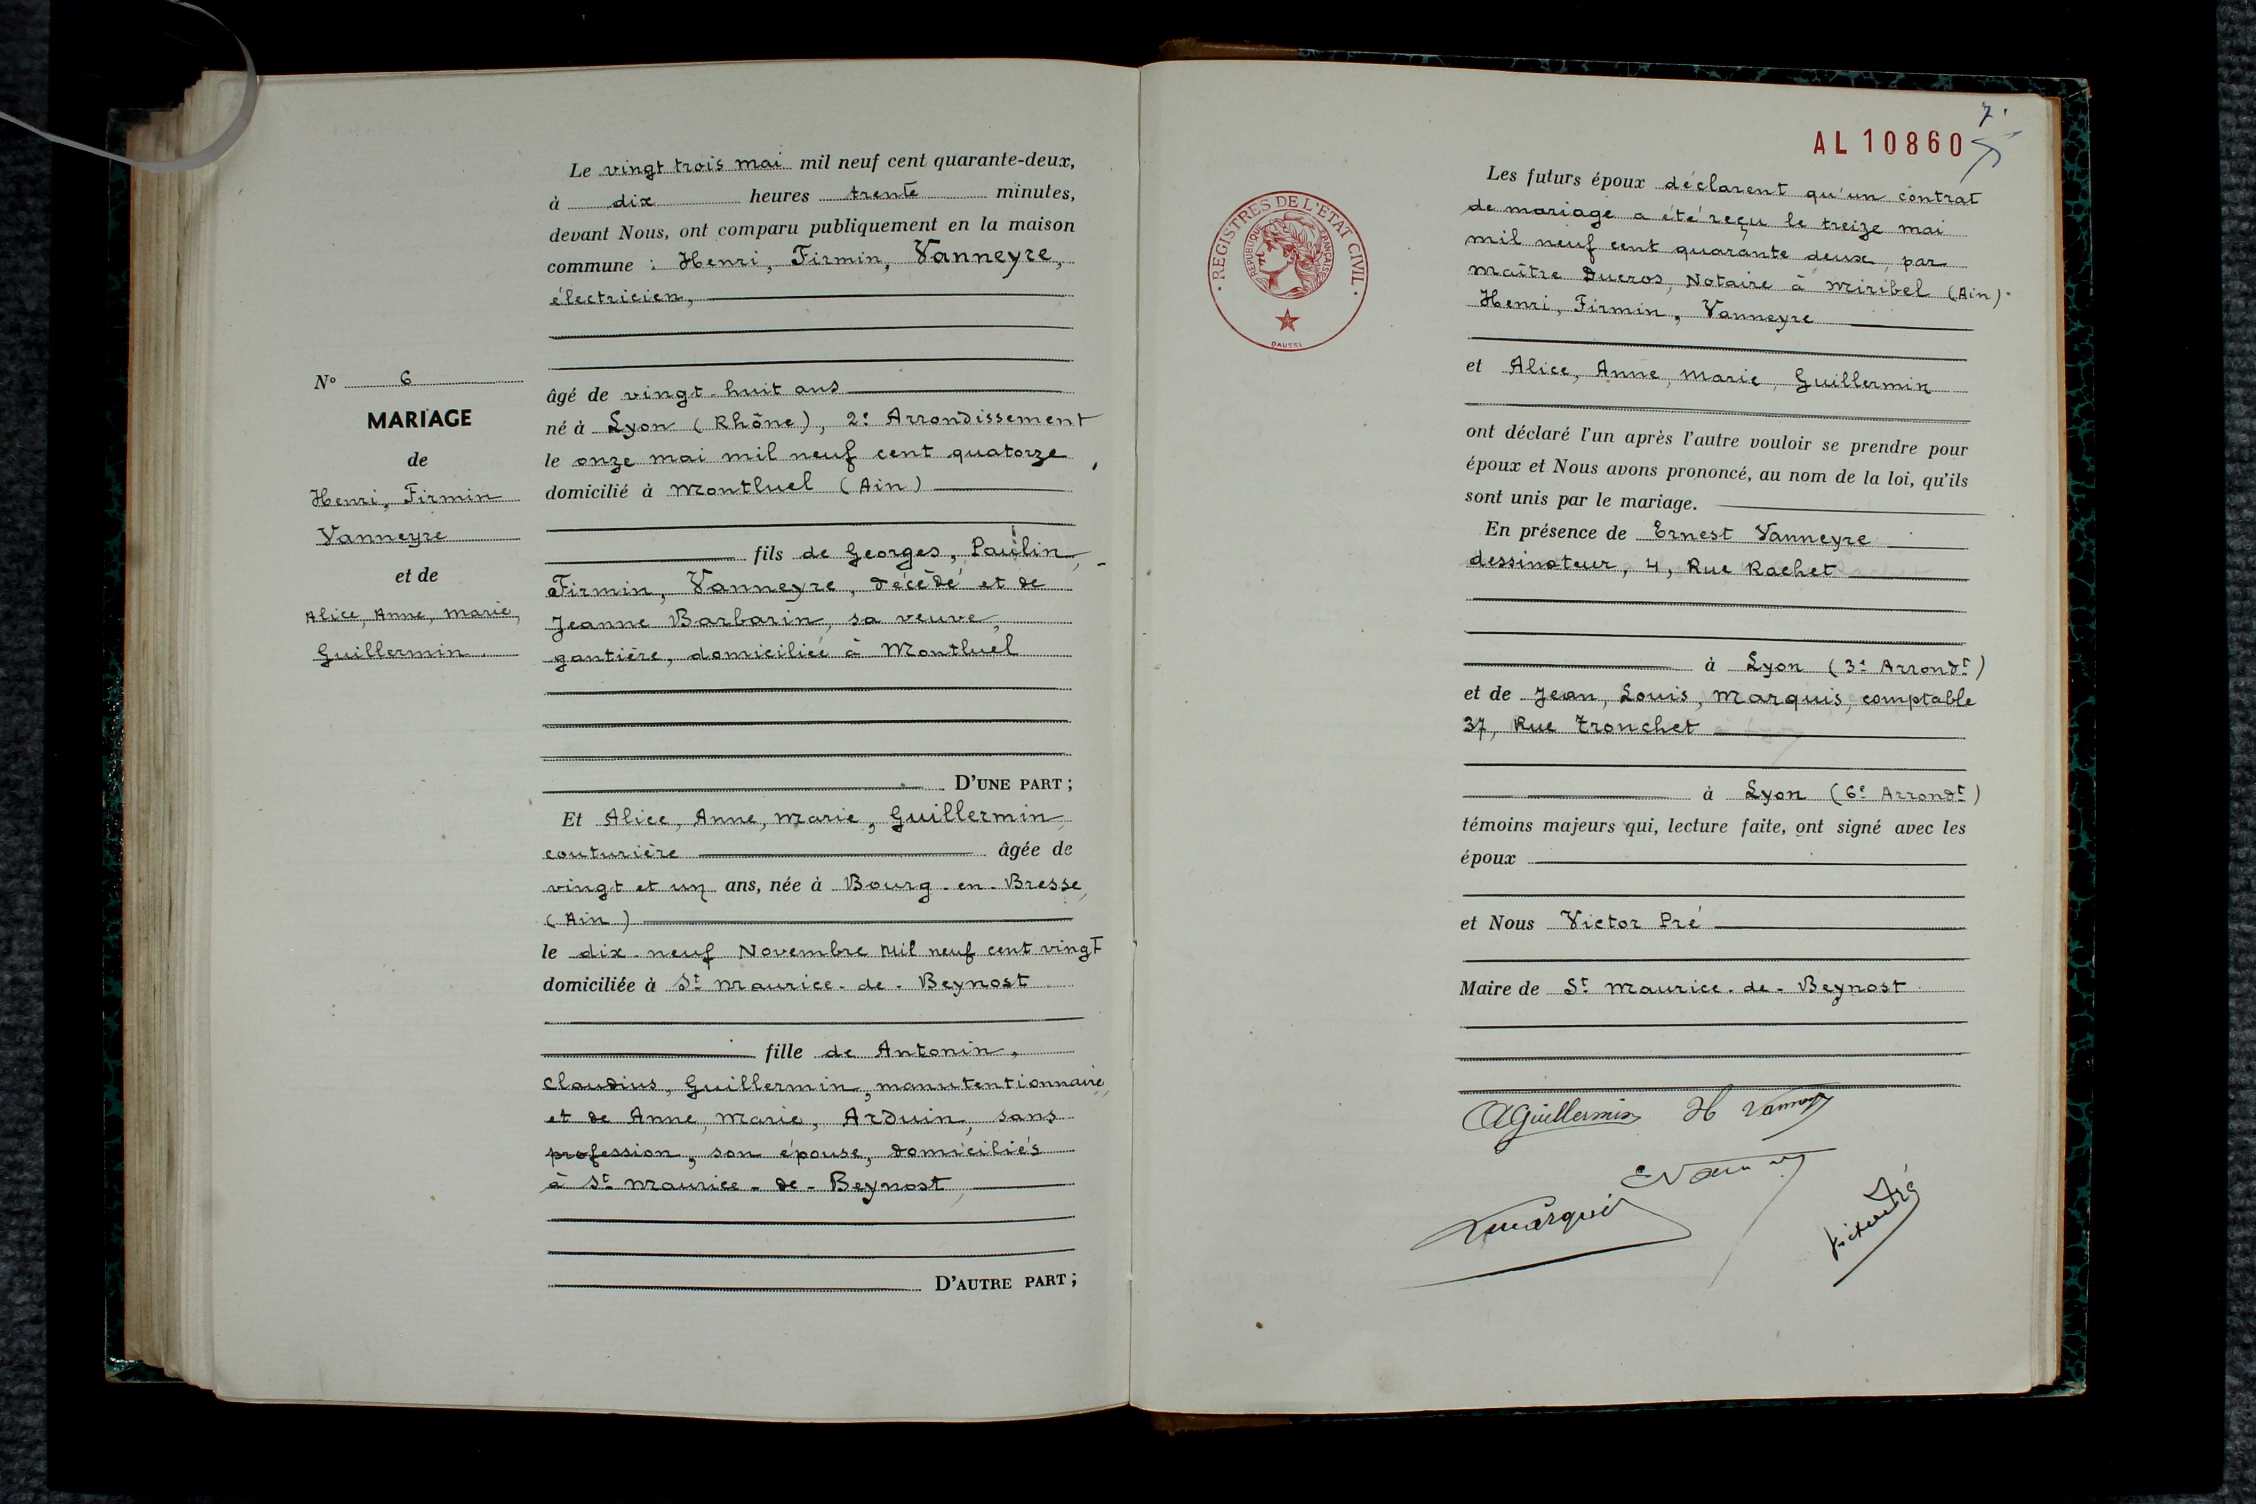 Le vingt trois mai mil neuf cent quarante-deux,
à dix heures trente minutes,
devant Nous, ont comparu publiquement en la maison
commune : Henri, Firmin, Vanneyre,
électricien,
N° 6
MARIAGE
de
Henri, Firmin
Vanneyre
et de
Alice, Anne, Marie,
Guillermin.
âgé de vingt-huit ans
né à Lyon (Rhône), 2e Arrondissement
le onze mai mil neuf cent quatorze,
domicilié à Montluel (Ain)
fils de Georges, Paulin,
Firmin, Vanneyre, décédé et de
Jeanne Barbarin, sa veuve,
gantière, domiciliée à Montluel
D'UNE PART ;
Et Alice, Anne, Marie, Guillermin,
couturière âgée de
vingt et un ans, née à Bourg-en-Bresse,
(Ain)
le dix-neuf Novembre mil neuf cent vingt
domiciliée à St Maurice-de-Beynost
fille de Antonin,
Claudius, Guillermin, manutentionnaire,
et de Anne, Marie, Arduin, sans
profession, son épouse, domiciliés
à St Maurice-de-Beynost,
D'AUTRE PART ;
7.
AL 10860
REGISTRES DE L'ÉTAT CIVIL
RÉPUBLIQUE FRANÇAISE
DAUSSI
Les futurs époux déclarent qu'un contrat
de mariage a été reçu le treize mai
mil neuf cent quarante deux, par
Maître Ducros, Notaire à Miribel (Ain).
Henri, Firmin, Vanneyre
et Alice, Anne, Marie, Guillermin
ont déclaré l'un après l'autre vouloir se prendre pour
époux et Nous avons prononcé, au nom de la loi, qu'ils
sont unis par le mariage.
En présence de Ernest Vanneyre
dessinateur, 4, Rue Rachet
à Lyon (3e Arrondt)
et de Jean, Louis, Marquis, comptable
37, Rue Tronchet
à Lyon (6e Arrondt)
témoins majeurs qui, lecture faite, ont signé avec les
époux
et Nous Victor Pré
Maire de St Maurice-de-Beynost
AGuillermin H Vanneyre
E Vanneyre
Marquis
Victor Pré